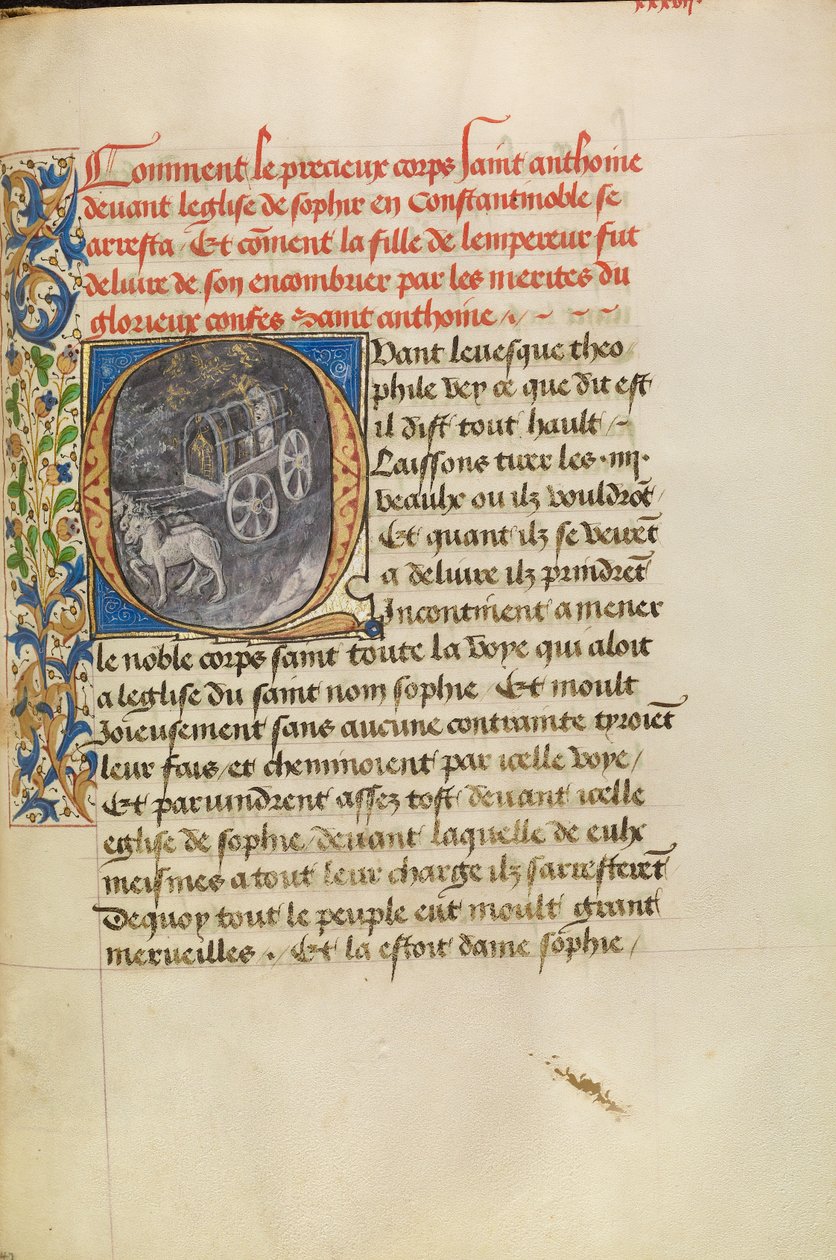 xxxvii.
Comment le precieux corps saint anthoine
deuant leglise de sophie en Constantinoble se
arresta / Et cōment la fille de lempereur fut
deliure de son encombrier par les merites du
glorieux confes Saint anthoine
Quant leuesque theo
phile vey ce que dit est
il dist tout hault /
Laissons tirer les .iiii.
veaulx ou ilz vouldrōt
Et quant ilz se veirēt
a deliure ilz prindrēt
Incontinent a mener
le noble corps saint toute la voye qui aloit
a leglise du saint nom sophie / Et moult
Joieusement sans aucune contrainte tyroiēt
leur fais / et cheminoient par icelle voye /
Et paruindrent assez tost deuant icelle
eglise de sophie / deuant laquelle de eulx
meismes a tout leur charge ilz sarresterēt
Dequoy tout le peuple eut moult grant
merueilles . / Et la estoit dame sophie /